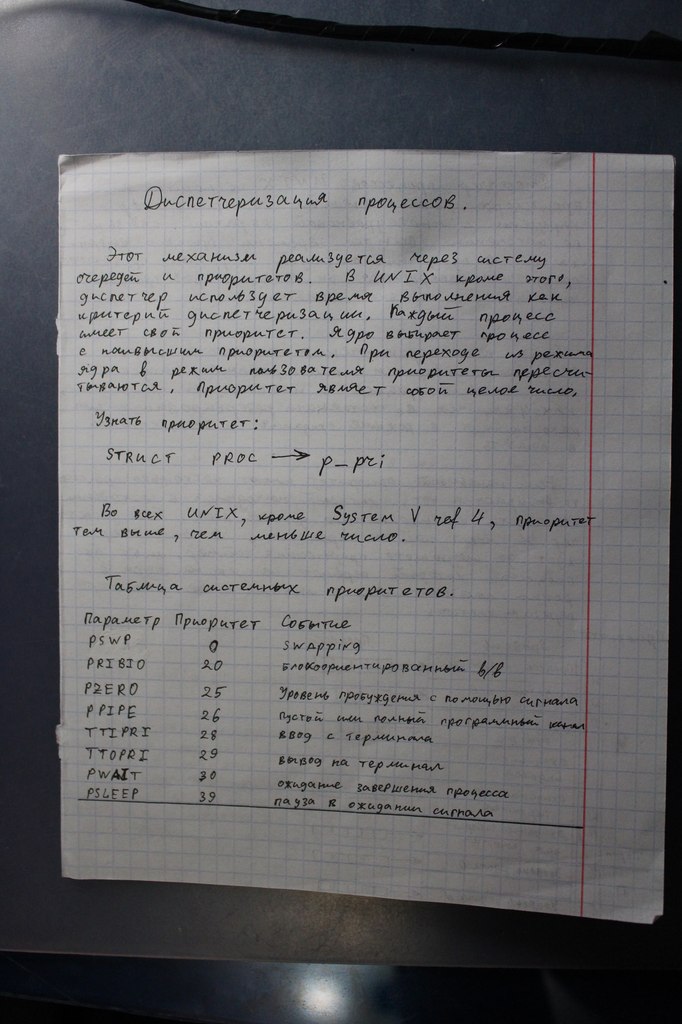 Диспетчеризация процессов.
Этот механизм реализуется через систему
очередей и приоритетов. В UNIX кроме этого,
диспетчер использует время выполнения как
критерий диспетчеризации. Каждый процесс
имеет свой приоритет. Ядро выбирает процесс
с наивысшим приоритетом. При переходе из режима
ядра в режим пользователя приоритеты пересчи-
тываются. Приоритет являет собой целое число.
Узнать приоритет:
STRUCT PROC → p_pri
Во всех UNIX, кроме System V rel 4, приоритет
тем выше, чем меньше число.
Таблица системных приоритетов.
Параметр Приоритет Событие
PSWP 0 swapping
PRIBIO 20 блокоориентированный в/в
PZERO 25 Уровень пробуждения с помощью сигнала
PPIPE 26 пустой или полный программный канал
TTIPRI 28 ввод с терминала
TTOPRI 29 вывод на терминал
PWAIT 30 ожидание завершения процесса
PSLEEP 39 пауза в ожидании сигнала